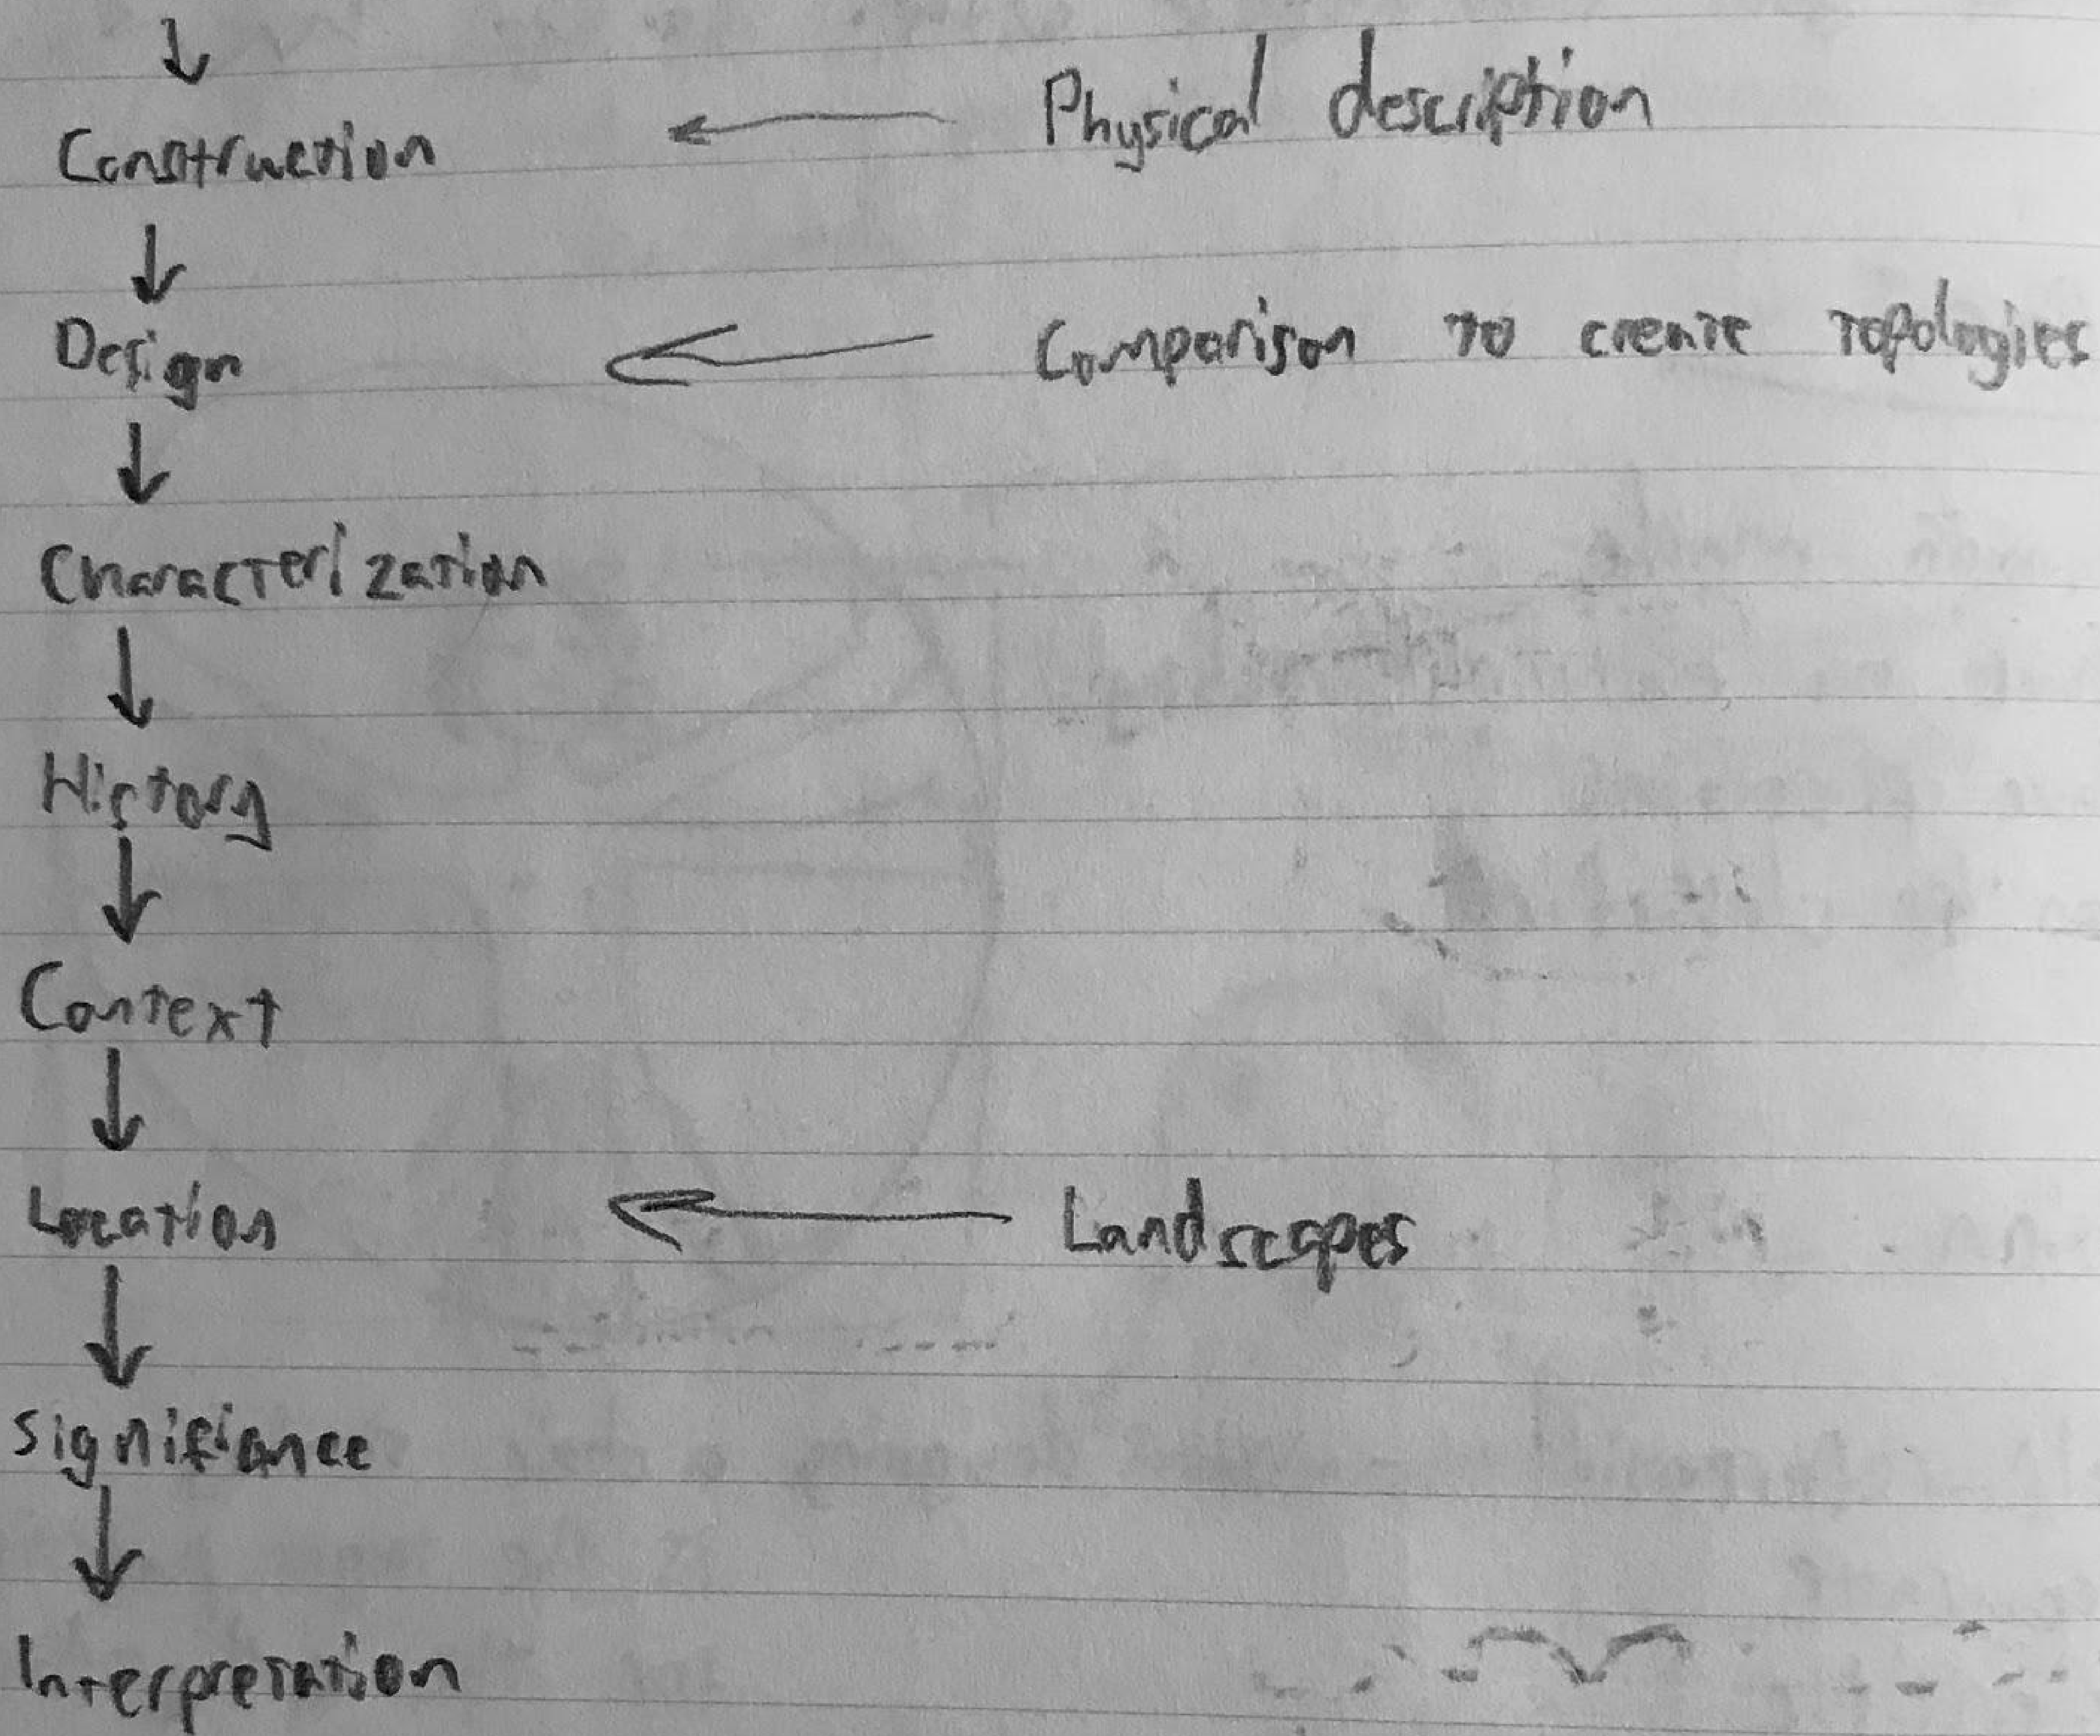 ↓
Construction ← Physical description
↓
Design ← Comparison to create topologies
↓
Characterization
↓
History
↓
Context
↓
Location ← Landscapes
↓
Signifiance
↓
Interpretation